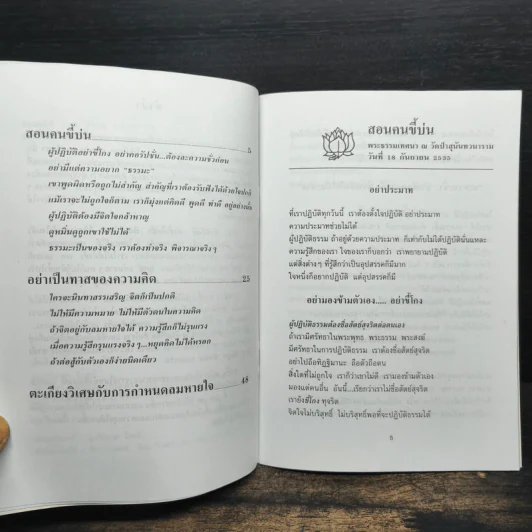 สอนคนขี้บ่น 5
ผู้ปฏิบัติอย่าขี้โกง อย่าคอรัปชั่น...ต้องละความชั่วก่อน
อย่ามีแต่ความอยาก "ธรรมะ"
เขาพูดผิดหรือถูกไม่สำคัญ สำคัญที่เราต้องรับฟังได้ด้วยใจปกติ
แม้เราจะไม่ถูกใจก็ตาม เราก็มุ่งแต่คิดดี พูดดี ทำดี อยู่อย่างนั้น
ผู้ปฏิบัติต้องมีจิตใจกล้าหาญ
ดูหมิ่นดูถูกเขาใช้ไม่ได้
ธรรมะเป็นของจริง เราต้องทำจริง พิจารณาจริง ๆ
อย่าเป็นทาสของความคิด 25
ใครจะนินทาสรรเสริญ จิตก็เป็นปกติ
ไม่ให้มีความหมาย ไม่ให้มีตัวตนในความคิด
ถ้าจิตอยู่กับลมหายใจได้ ความรู้สึกก็ไม่รุนแรง
เมื่อความรู้สึกรุนแรงจริง ๆ...หยุดคิดไม่ได้หรอก
ถ้าต่อสู้กับตัวเองก็ง่ายนิดเดียว
ตะเกียงวิเศษกับการกำหนดลมหายใจ 48
สอนคนขี้บ่น
พระธรรมเทศนา ณ วัดป่าสุนันทวนาราม
วันที่ 18 กันยายน 2535
อย่าประมาท
ที่เราปฏิบัติทุกวันนี้ เราต้องตั้งใจปฏิบัติ อย่าประมาท
ความประมาทช่วยไม่ได้
ผู้ปฏิบัติธรรม ถ้าอยู่ด้วยความประมาท ก็เท่ากับไม่ได้ปฏิบัตินั่นแหละ
ความรู้สึกของเรา ใจของเราก็บอกว่า เราพยายามปฏิบัติ
แต่สิ่งต่างๆ ที่รู้สึกว่าเป็นอุปสรรคก็มี
ใจหนึ่งก็อยากปฏิบัติ แต่อุปสรรคก็มี
อย่ามองข้ามตัวเอง..... อย่าขี้โกง
ผู้ปฏิบัติธรรมต้องซื่อสัตย์สุจริตต่อตนเอง
ถ้าเรามีศรัทธาในพระพุทธ พระธรรม พระสงฆ์
มีศรัทธาในการปฏิบัติธรรม เราต้องซื่อสัตย์สุจริต
อย่าไปถือทิฏฐิมานะ ถือตัวถือตน
สิ่งใดที่ไม่ถูกใจ เราก็ว่าเขาไม่ดี เรามองข้ามตัวเอง
มองแต่คนอื่น อันนี้...เรียกว่าเราไม่ซื่อสัตย์สุจริต
เรายังขี้โกง ทุจริต
จิตใจไม่บริสุทธิ์ ไม่บริสุทธิ์พอที่จะปฏิบัติธรรมได้
5